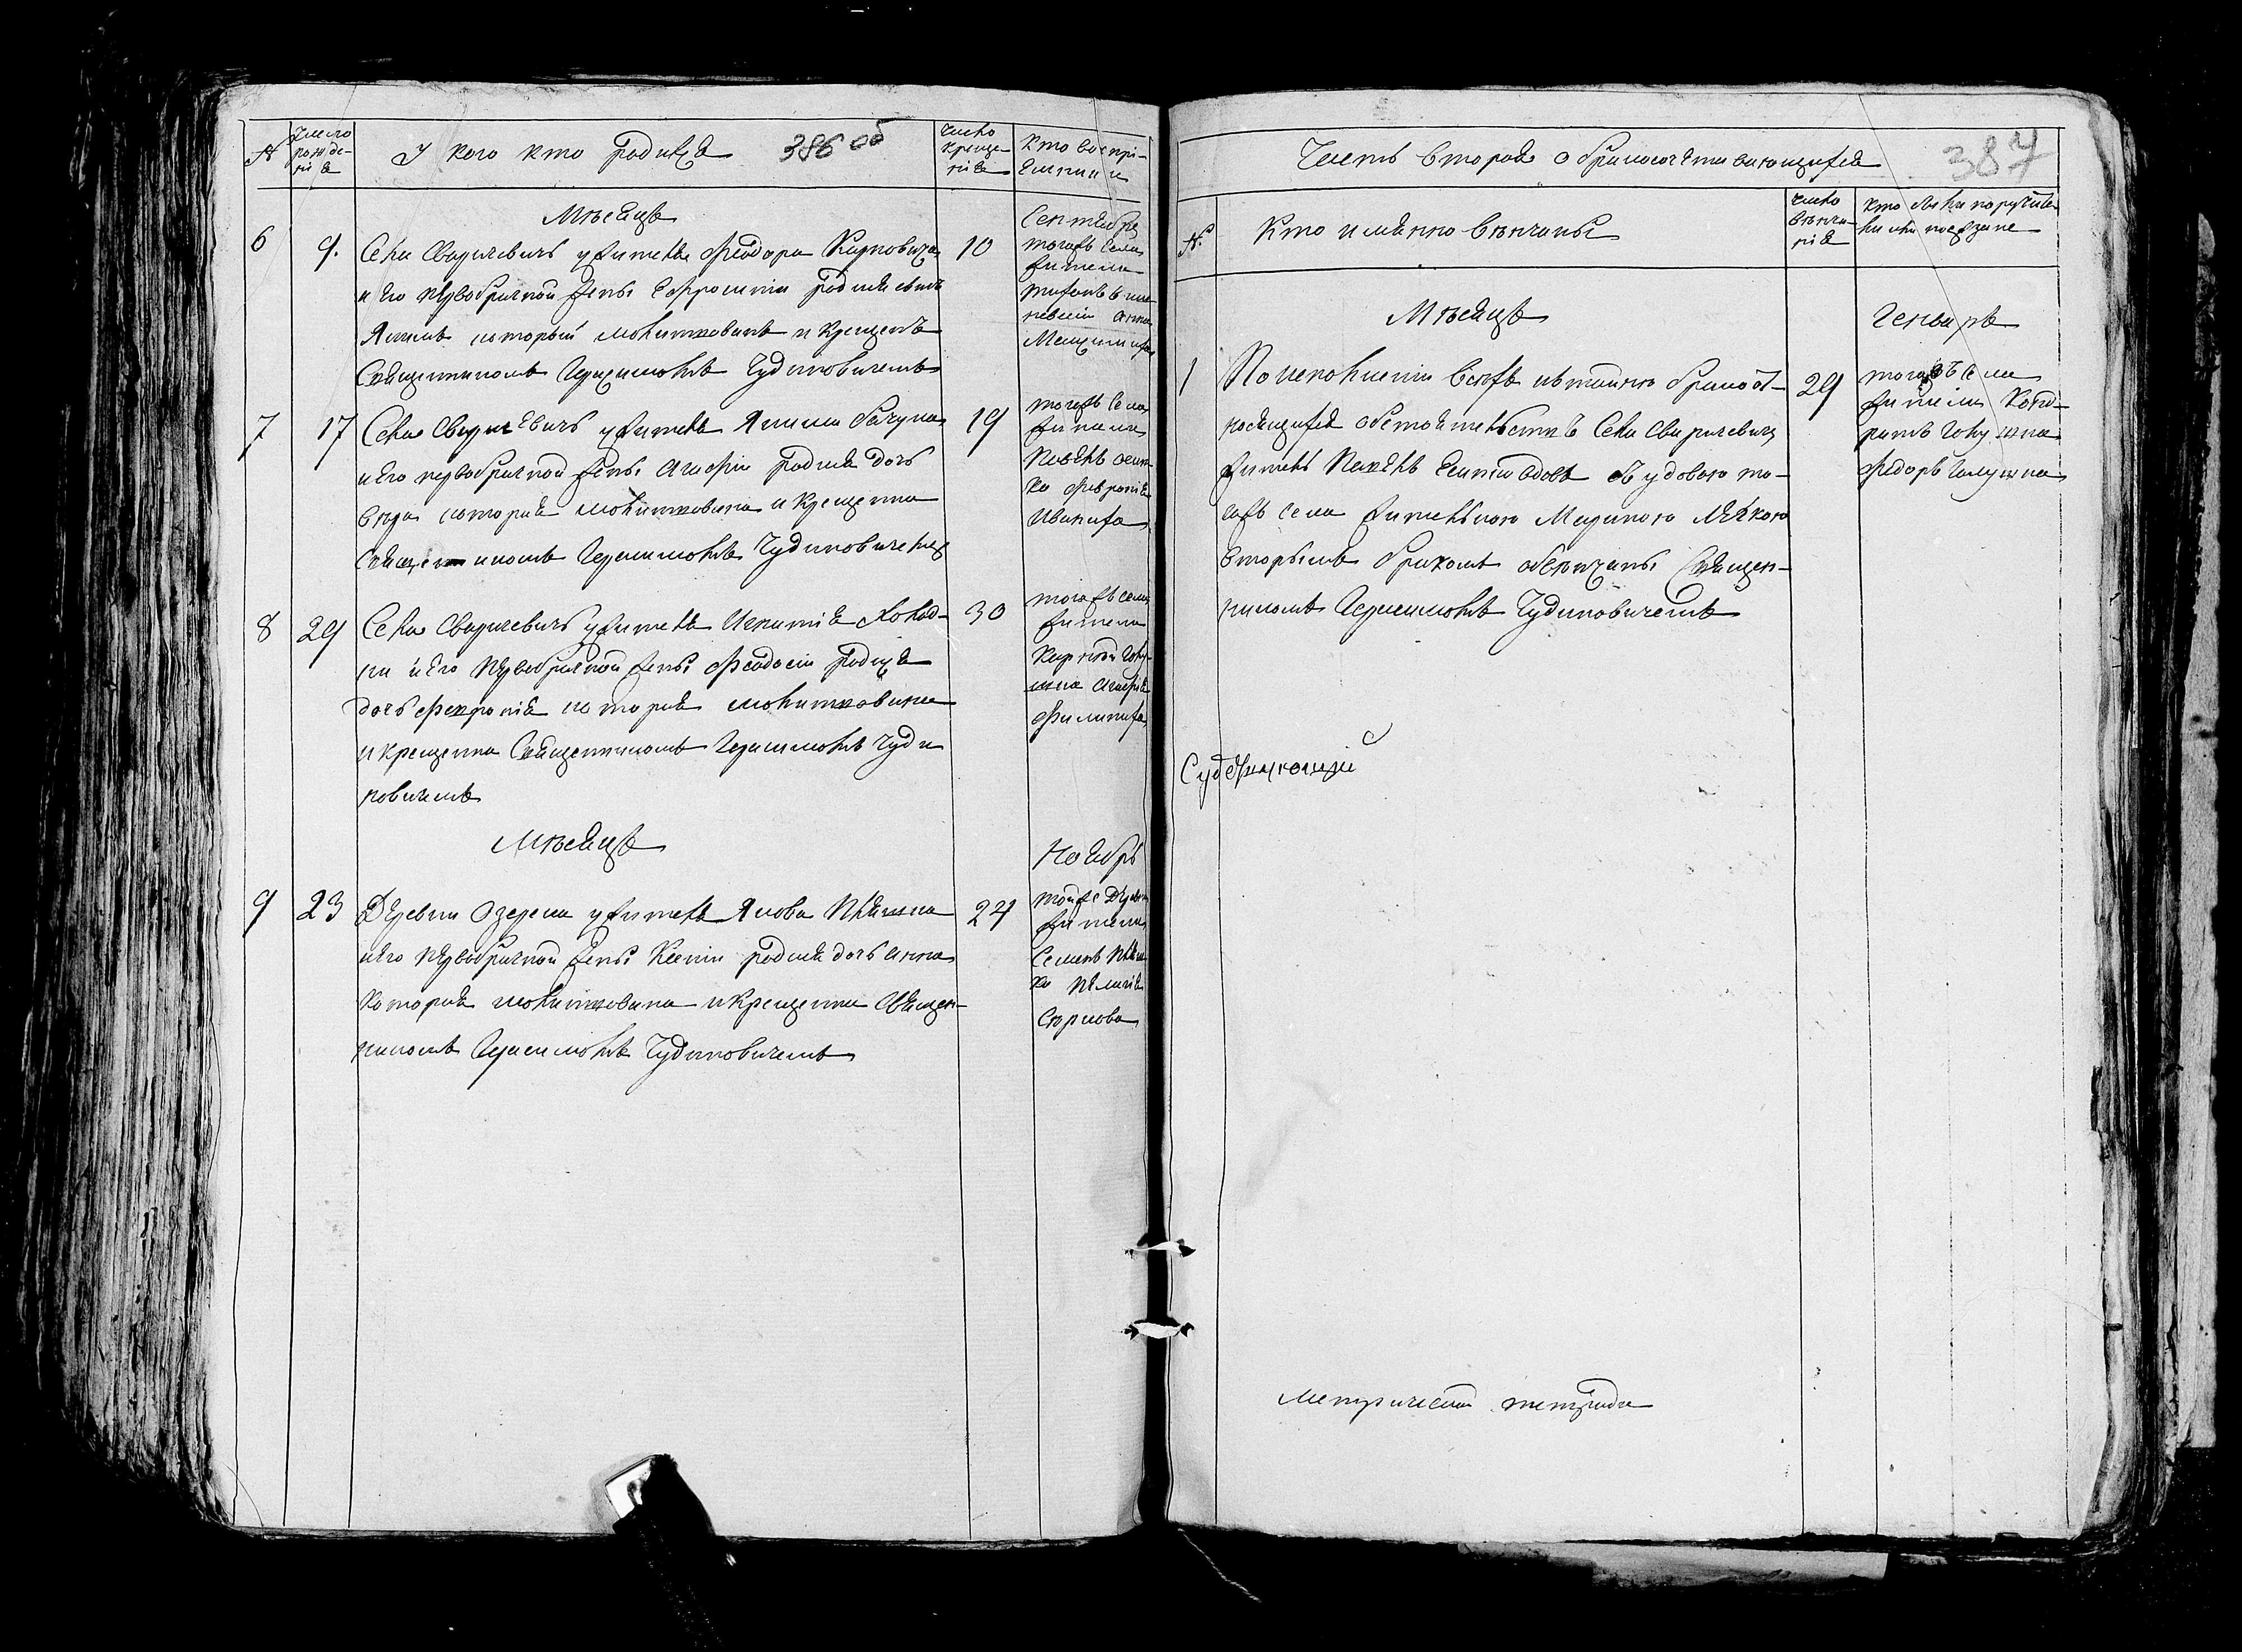 №
Число рожде-нія
У кого кто родился
386 об
Число креще-нія
Кто воспрі-емники
Мѣсяцъ
Сентябрь
6
9.
Села Сваричевичъ у жителя Феодора Карповича
и его первобрачной жены Ефросиніи родился сынъ
Якимъ который молитвованъ и крещенъ
Священникомъ Герасимомъ Чудиновичемъ
10
тогожъ села
жители
Анна
7
17
Села Сваричевичъ у жителя Якима
и его первобрачной жены Агафіи родилась дочь
Вѣра которая молитвована и крещенна
Священникомъ Герасимомъ Чудиновичемъ
19
тогожъ села
жители
Февронія
Иваниха
8
29
Села Сваричевичъ у жителя Игнатія Колод-
ки и его первобрачной жены Феодосіи родилась
дочь Февронія которая молитвована
и крещенна Священникомъ Герасимомъ Чуди
новичемъ
30
тогожъ села
жители
Агафія
Филипиха
Мѣсяцъ
Ноябрь
9
23
Деревни Озерска у жителя Якова
и его первобрачной жены Ксеніи родилась дочь Анна
которая молитвована и крещенна Священ-
никомъ Герасимомъ Чудиновичемъ
24
тойже деревни
жители
Семенъ
Часть вторая о бракосочетавающихся
387
№.
Кто именно вѣнчаны
Число вѣнча-нія
Кто были поручите-ли или поезжане
Мѣсяцъ
Генварь
1
По исполненіи всѣхъ къ тайнѣ брака от-
носящихся обстоятельствъ Села Сваричевичъ
житель вдовъ съ удовою то-
гожъ села жителькою Мариною
вторымъ бракомъ обвѣнчаны Священ-
никомъ Герасимомъ Чудиновичемъ
29
тогожъ села
жители Конд-
ратъ
Федоръ
Метрической тетради